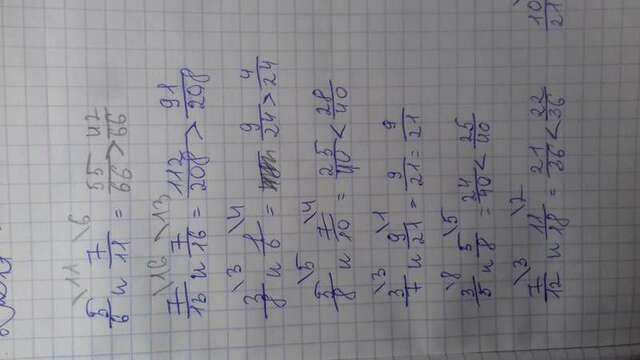 5/6 \11 и 7/11 \6 = 55/66 > 42/66
7/13 \16 и 7/16 \13 = 112/208 > 91/208
3/8 \3 и 1/6 \4 = 9/24 > 4/24
5/8 \5 и 7/10 \4 = 25/40 < 28/40
3/7 \3 и 9/21 \1 = 9/21 = 9/21
3/5 \8 и 5/8 \5 = 24/40 < 25/40
7/12 \3 и 11/18 \2 = 21/36 < 22/36 10/21